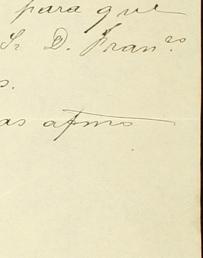 para que
Sr D. Fran.co
s.
as afmo